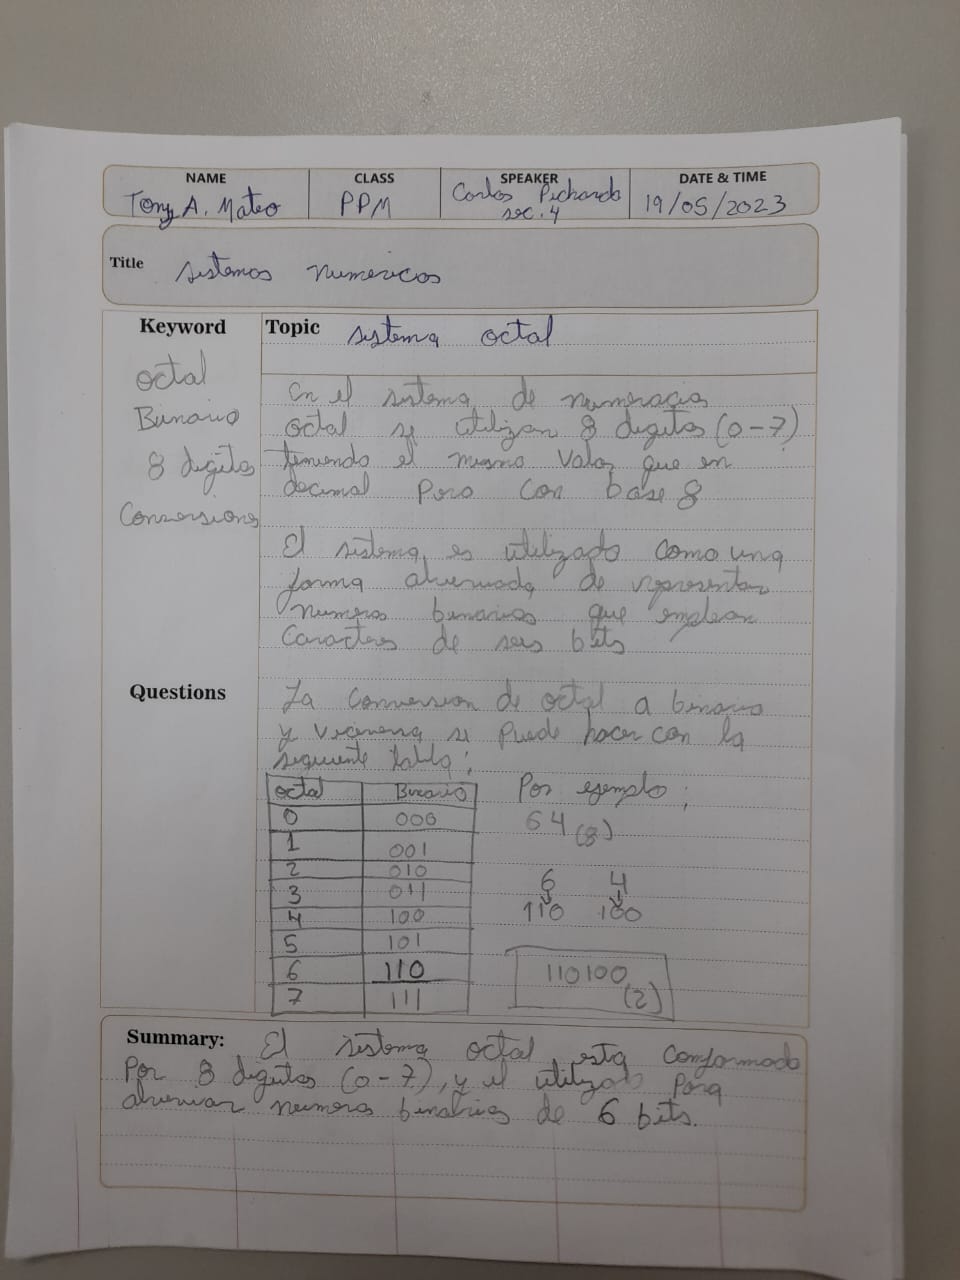 NAME CLASS SPEAKER DATE & TIME
Tony A. Mateo PPM Carlos Pichardo 19/05/2023
sec. 4
Title sistemas numericos
Keyword Topic sistema octal
octal
Binario
8 digitos
Conversiones
En el sistema de numeracion
octal se utilizan 8 digitos (0-7)
teniendo el mismo valor que en
decimal pero con base 8
El sistema es utilizado como una
forma abreviada de representar
numeros binarios que emplean
Caracteres de seis bits
Questions
La conversion de octal a binario
y viceversa se puede hacer con la
siguiente tabla:
octal Binario
0 000
1 001
2 010
3 011
4 100
5 101
6 110
7 111
Por ejemplo;
64 (8)
6 4
110 100
110100 (2)
Summary: El sistema octal esta conformado
Por 8 digitos (0-7), y el utilizado para
abreviar numeros binarios de 6 bits.